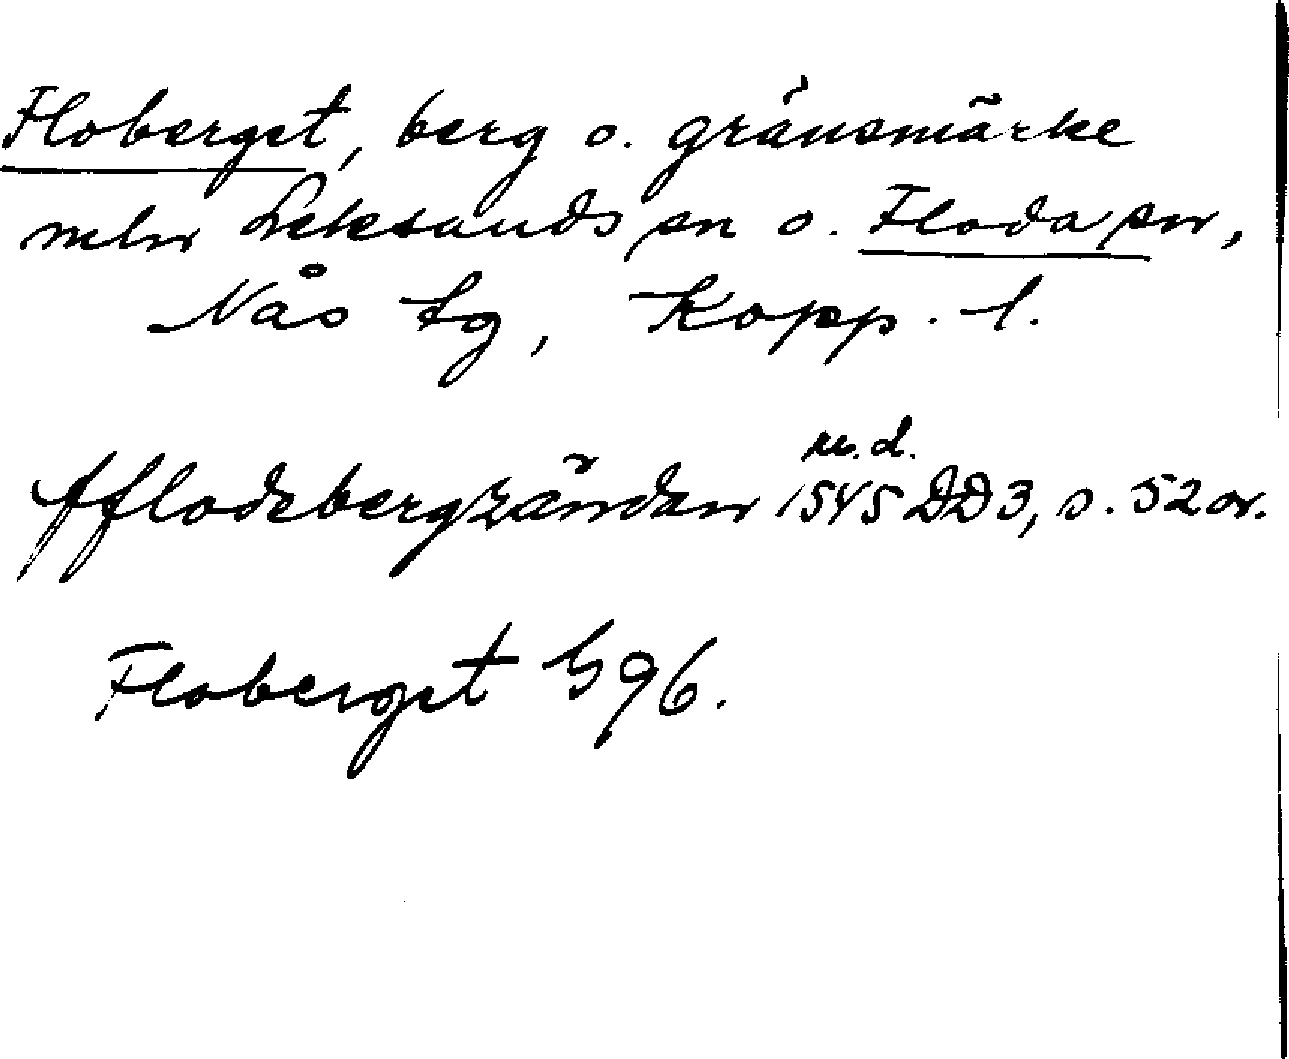 Floberget, berg o. gränsmärke
mln Leksands sn o. Floda sn,
Nås tg, Kopp. l.
u. d.
fflodebergzänden 1545 DD3, s. 52 or.
Floberget G 96.